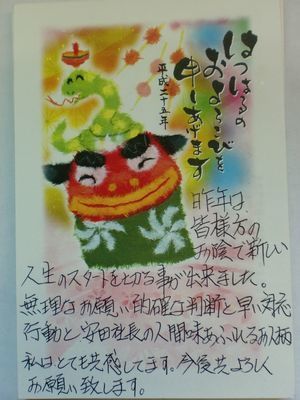 はつはるの
およろこびを
申しあげます
平成二十五年
昨年は
皆様方の
お陰で新しい
人生のスタートをとる事が出来ました。
無理なお願い的確な判断と早い対応
行動と安田社長の人間味あふれるお人柄
私はとても共感してます。今後共よろしく
お願い致します。